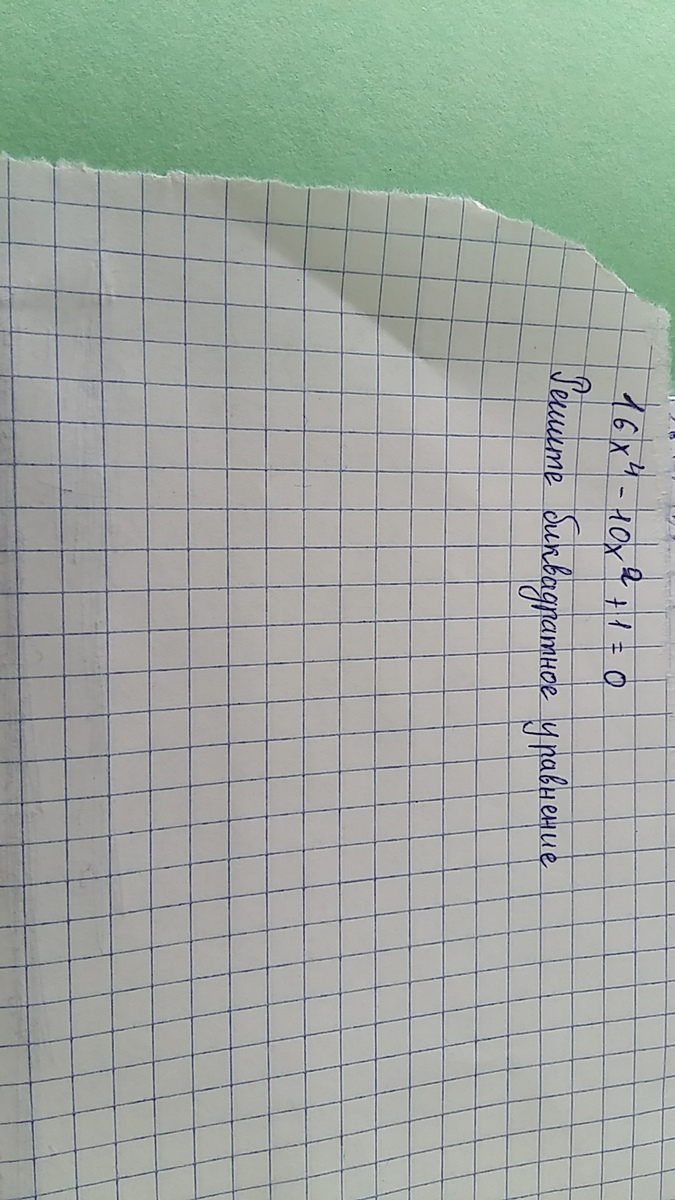 16x⁴ - 10x² + 1 = 0
Решите биквадратное уравнение